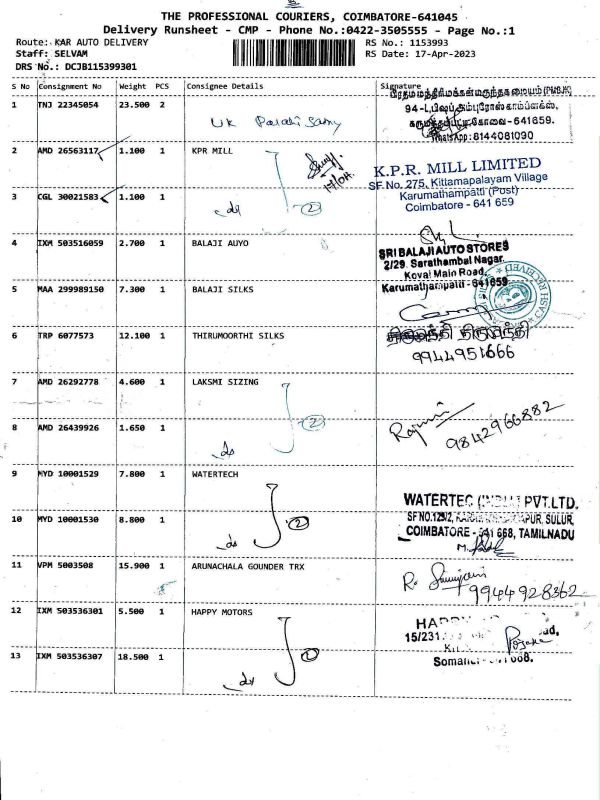 THE PROFESSIONAL COURIERS, COIMBATORE-641045
Delivery Runsheet - CMP - Phone No.:0422-3505555 - Page No.:1
Route: KAR AUTO DELIVERY RS No.: 1153993
Staff: SELVAM RS Date: 17-Apr-2023
DRS No.: DCJB115399301
S No Consignment No Weight PCS Consignee Details Signature
1 TNJ 22345054 23.500 2
UK Palani Samy
94-L,
641659.
WhatsApp: 8144081090
2 AMD 26563117 1.100 1 KPR MILL
17/04
K.P.R. MILL LIMITED
SF No. 275, Kittampalayam Village
Karumathampatti (Post)
Coimbatore - 641 659
3 CGL 30021583 1.100 1
do 2
4 IXM 503516059 2.700 1 BALAJI AUYO
SRI BALAJI AUTO STORES
2/29. Sarathambal Nagar,
Kovai Main Road,
Karumathampatti - 641659
5 MAA 299989150 7.300 1 BALAJI SILKS
CASH RECEIVED
6 TRP 6077573 12.100 1 THIRUMOORTHI SILKS
9944951666
7 AMD 26292778 4.600 1 LAKSMI SIZING
9842966882
8 AMD 26439926 1.650 1
do 2
9 MYD 10001529 7.800 1 WATERTECH
WATERTEC (INDIA) PVT.LTD.
SULUR,
COIMBATORE - 641 668, TAMILNADU
10 MYD 10001530 8.800 1
do 2
11 VPM 5003508 15.900 1 ARUNACHALA GOUNDER TRX
9944928362
12 IXM 503536301 5.500 1 HAPPY MOTORS
15/231
13 IXM 503536307 18.500 1
do 2